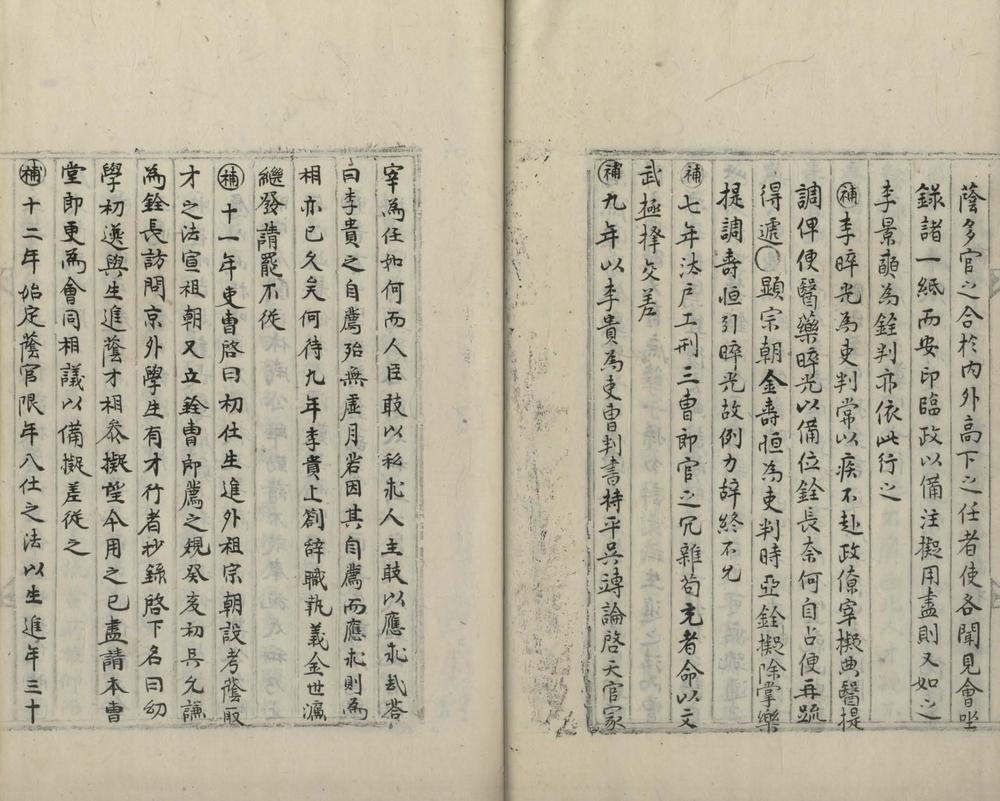 蔭多官之合於內外高下之任者使各聞見會坐
錄諸一紙而安印臨政以備注擬用盡則又如之
李景顔為銓判亦依此行之
補李晬光為吏判常以疾不赴政僚宰擬典醫提
調俾便醫藥晬光以備位銓長奈何自占便再䟽
得遞〇顕宗朝金壽恒為吏判時亞銓擬除掌樂
提調壽恒引晬光故例力辞終不允
補七年汰戶工刑三曹郎官之冗雜苟充者命以文
武極擇交差
補九年以李貴為吏曹判書持平吳竱論啓天官冢
宰為任如何而人臣敢以私求人主敢以應求哉荅
曰李貴之自薦殆無虛月若因其自薦而應求則為
相亦已久矣何待九年李貴上劄辭職執義金世濂
繼發請罷不從
補十一年吏曹啓曰初仕生進外祖宗朝設考蔭取
才之法宣祖朝又立銓曹郎薦之規癸亥初吳允謙
為銓長訪問京外學生有才行者抄錄啓下名曰幼
學初選與生進蔭才相叅擬望今用之已盡請本曹
堂郎更為會同相議以備擬差從之
補十二年始定蔭官限年入仕之法以生進年三十